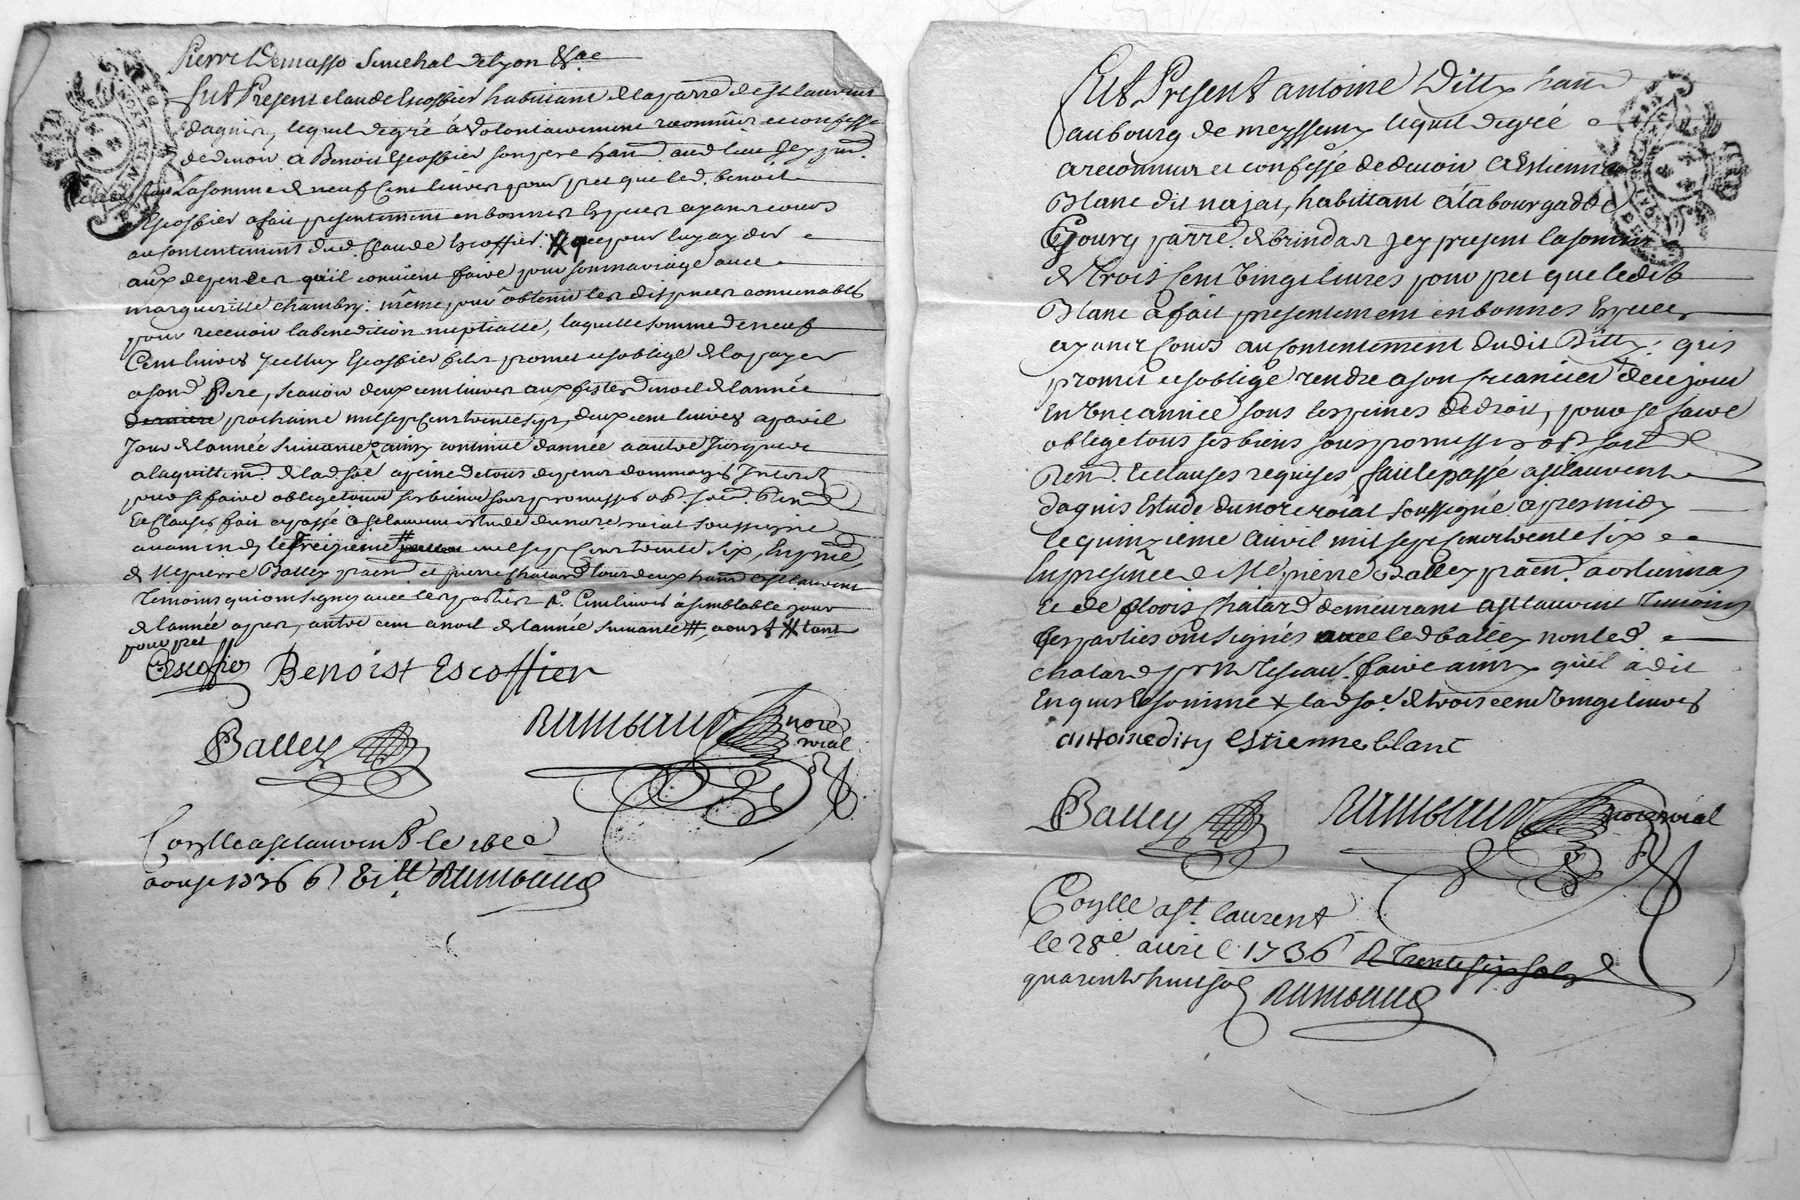 Pierre Demasso Senechal de lyon &ae
fut Present claude Escoffier habitant de la parre de st laurent
dagnis, lequel de gré à volontairement reconnu et confesse
de devoir a Benoit Escoffier son pere hant aud lieu Jcy pnt
la somme de neuf Cent livres pour pret que led. benoit
Escoffier a fait presentement en bonnes Especes ayant cours
au contentement dud. Claude Escoffier. pour luy ayder
aux depences qu'il convient faire pour son mariage avec
margueritte chambry: même pour obtenir les dispences convenables
pour recevoir la benediction nuptialle, laquelle somme de neuf
Cent livres Jcelluy Escoffier fils promet et soblige de la payer
a sond Pere, scavoir deux cent livres aux festes de noel de l'année
derniere prochaine mil sept cent trente sept, deux cent livres a pareil
Jour de l'année suivante & ainsy continue d'année a autre Jusques
a laquittemt de lad soe a peine de tous depens dommages Interets
pour se faire oblige tous ses biens sous promesses obs. soum. Ren
Et Clauses fait et passé a st laurent etude du nore roial soussigne
avant midy le treizieme mil sept cent trente six, En pnce
de Me pierre Balley patn et pierre chatard tous deux hants a st laurent
Temoins qui ont signes avec les parties Cent livres à semblable jour
de l'année apres, autre cent a noel de l'année suivante # aoust # tant
pour pret
Escoffier Benoist Escoffier
Balley Rambaud nore
roial
Conlle a st laurent le 18ee
aoust 1736 Rambaud
Fut Present antoine Ditty hant
au bourg de meyssemy lequel de gré
a reconnu et confessé de devoir a Estienne
Blanc dit najat, habittant à la bourgade de
Goury parre de brindas Jcy present la somme
de trois Cent vingt livres pour pret que ledit
Blanc a fait presentement en bonnes Especes
ayant Cours au Contentement dudit Ditty: qu'il
promet et soblige rendre a son creancier de ce jour
En Une année sous les peines de droit, pour se faire
oblige tous ses biens sous promesses obs. soub.
Ren. Et clauses requises fait et passé a st laurent
dagnis Estude du nore roial soussigné apres midy
le quinzieme avril mil sept cent trente six
En presence de Me pierre Balley patn. a
Et de flori chatard demeurant a st laurent Temoins
les parties ont signés avec led balley non led
chatard pr ne scavoir faire ainsy qu'il à dit
Enquis Et sommé x lad soe de trois cent vingt livres
antoine dity estienne blanc
Balley Rambaud nore roial
Conlle a st. laurent
le 28e avril 1736 R trente six sols
quarente huit sols Rambaud